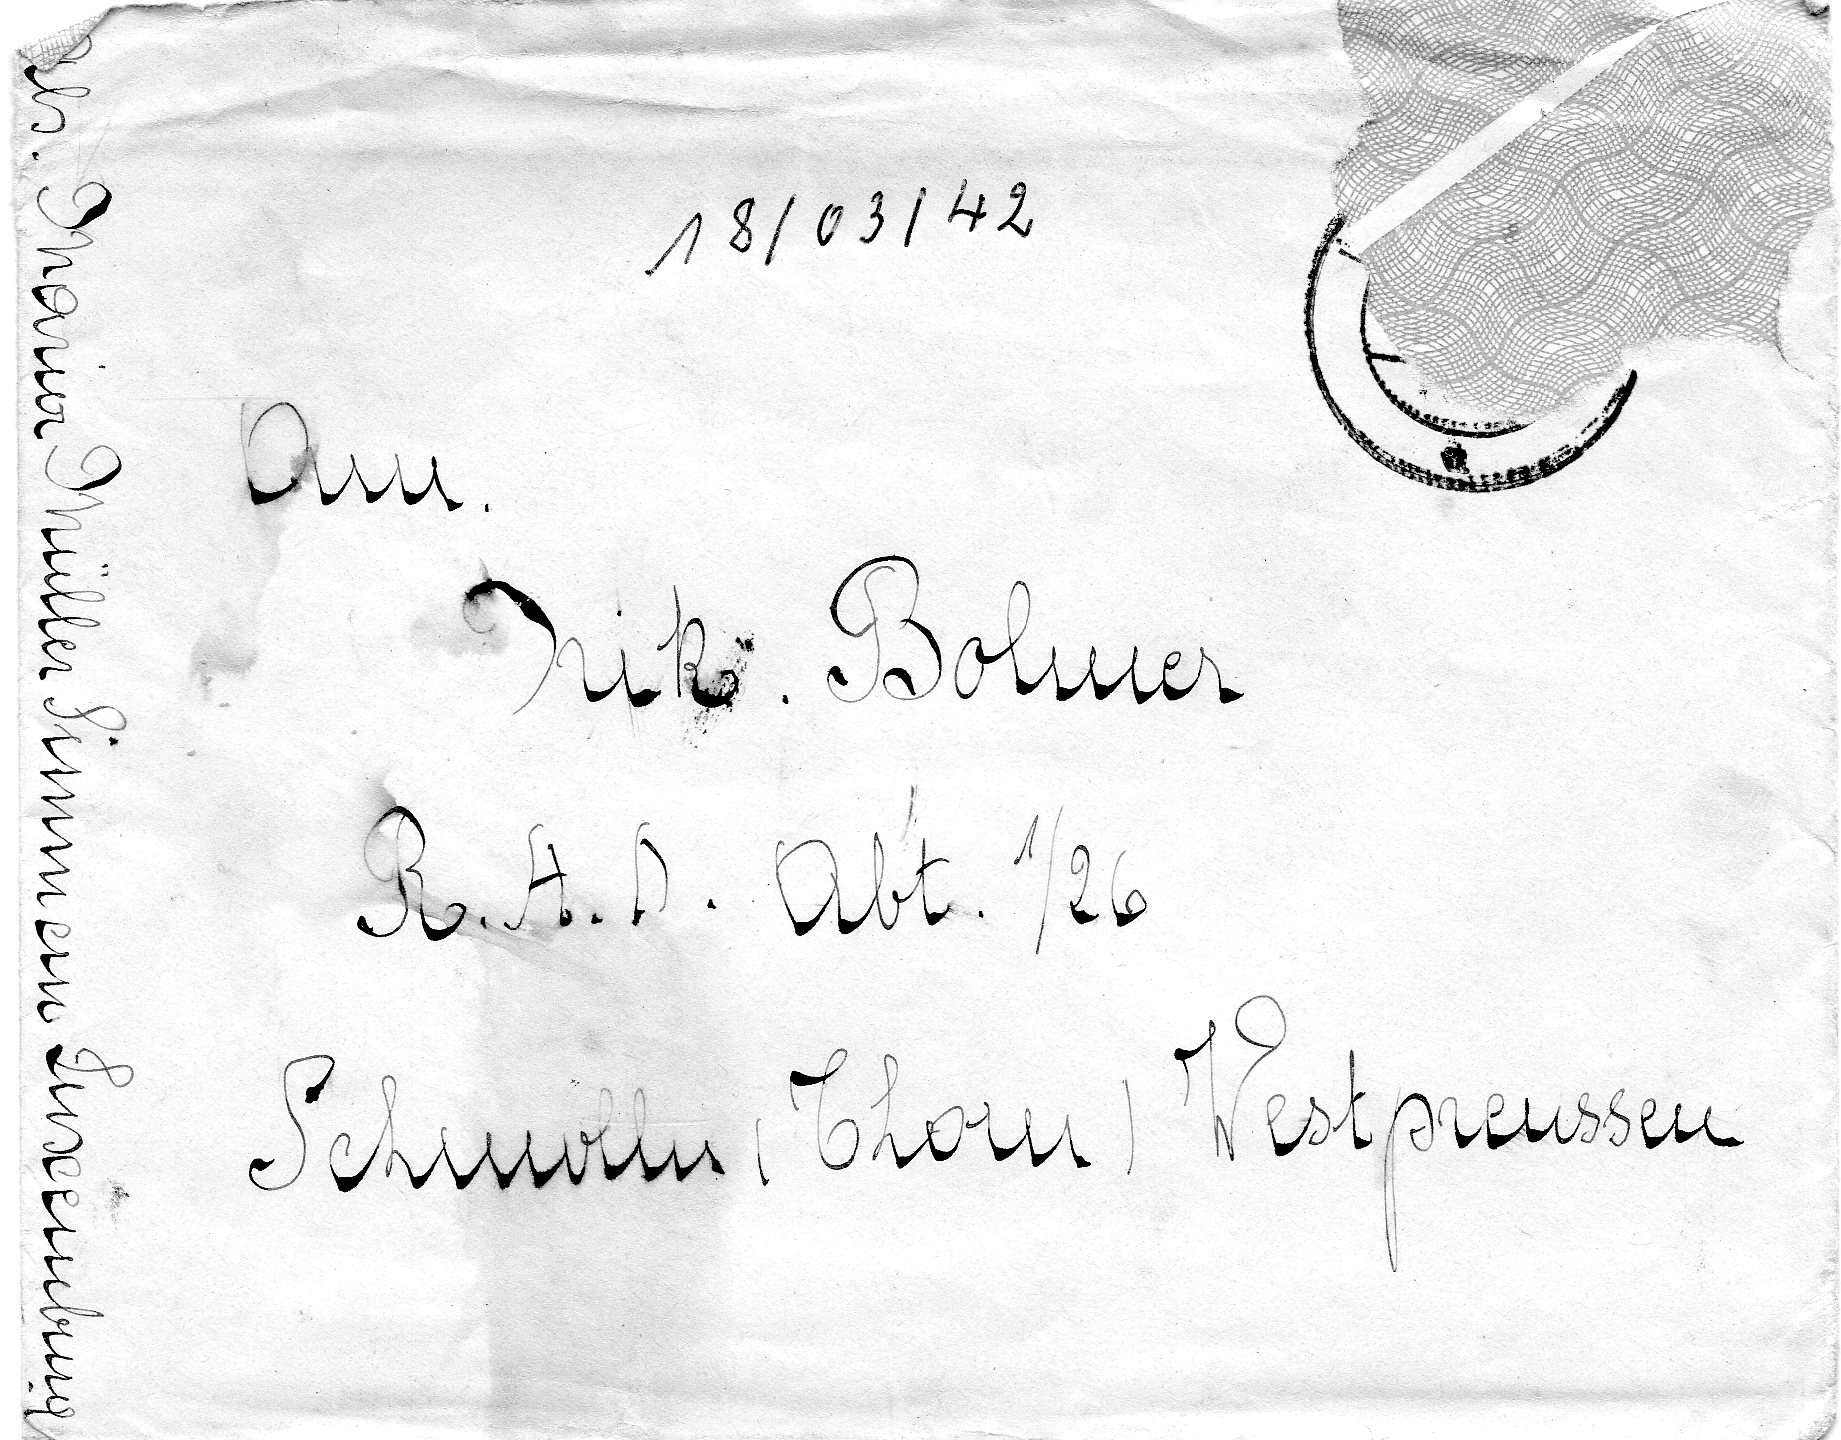 18/03/42
An.
Nik. Bolmer
R.A.D. Abt. 1/26
Schmolln (Thorn) Westpreussen
Abs. Maria Müller Simmern Luxemburg